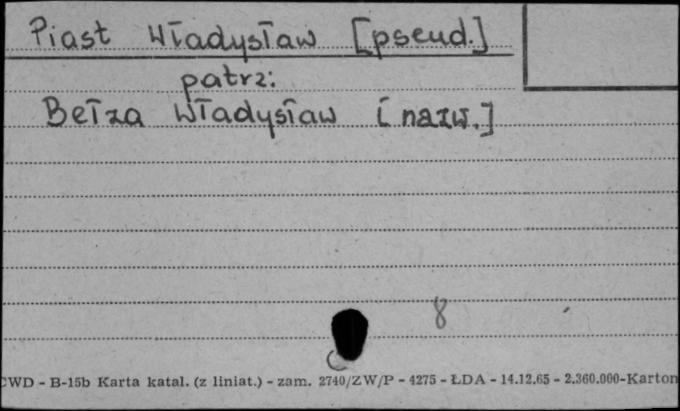 Piast Władysław [pseud.]
patrz:
Bełza Władysław [nazw.]
8
CWD - B-15b Karta katal. (z liniat.) - zam. 2740/ZW/P - 4275 - ŁDA - 14.12.65 - 2.360.000-Karton